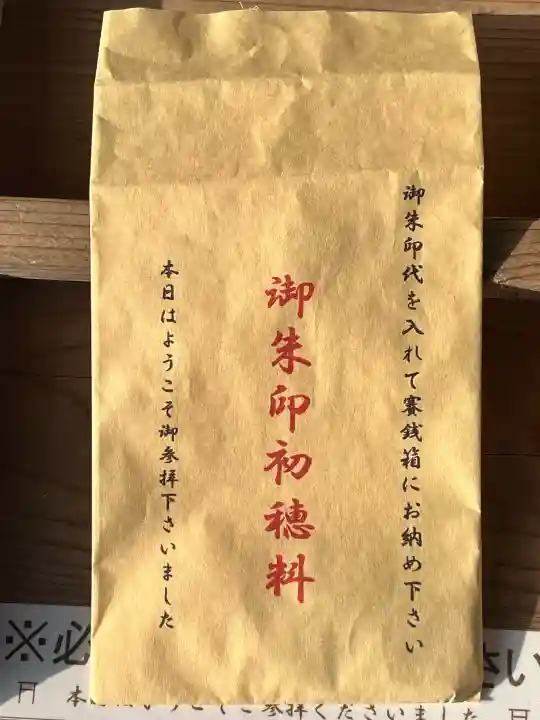 御朱印代を入れて賽銭箱にお納め下さい
御朱印初穂料
本日はようこそ御参拝下さいました
※必
さい
本
ご参拝くださいました